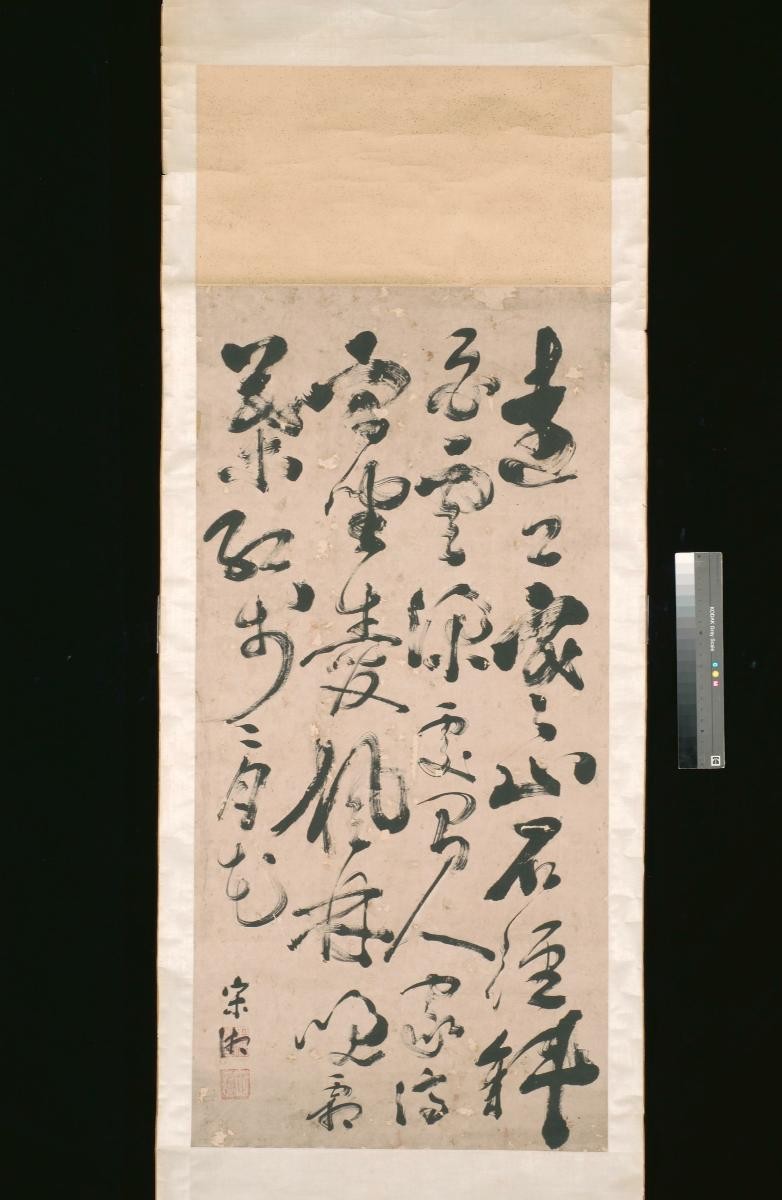 遠上寒山石徑斜
白雲深處有人家停
車坐愛楓林晚霜
葉紅於二月花
宋湘
KODAK Gray Scale
C Y M